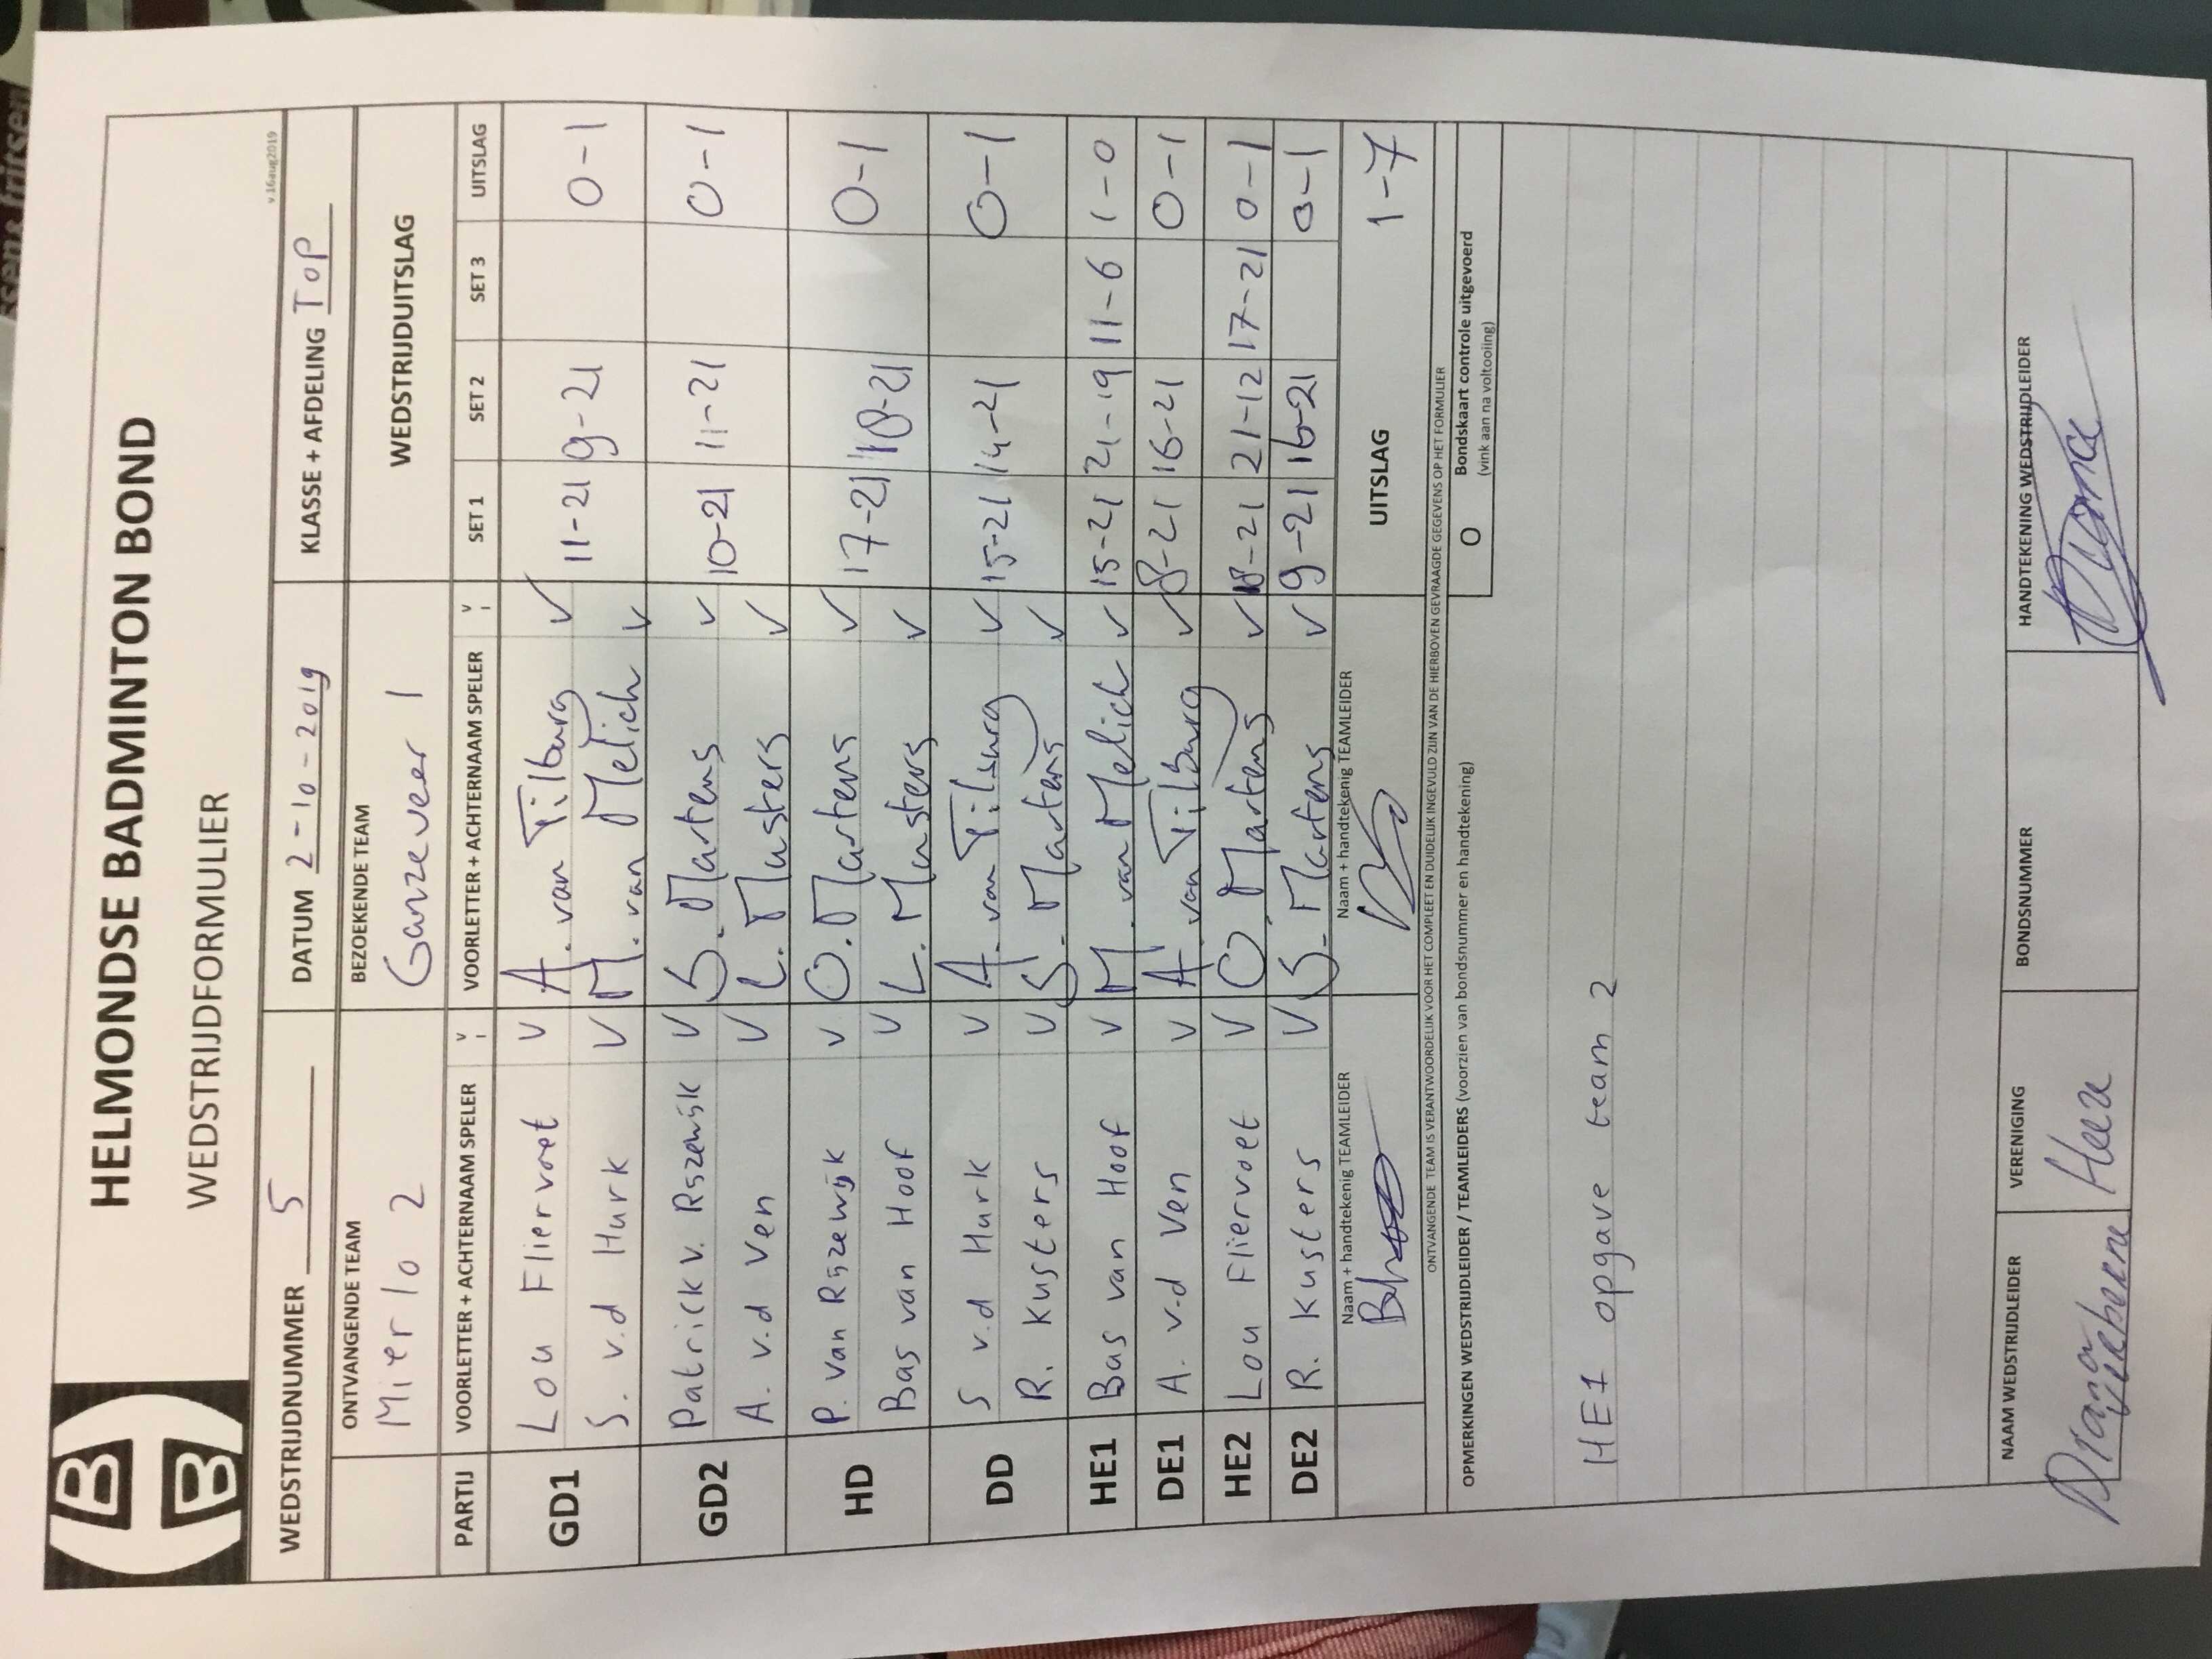 HELMONDSE BADMINTON BOND
WEDSTRIJDFORMULIER
v.16aug2019
WEDSTRIJDNUMMER 5 DATUM 2-10-2019 KLASSE + AFDELING TOP
ONTVANGENDE TEAM BEZOEKENDE TEAM WEDSTRIJDUITSLAG
Mierlo 2 Ganzeveer 1
PARTIJ VOORLETTER + ACHTERNAAM SPELER V VOORLETTER + ACHTERNAAM SPELER V SET 1 SET 2 SET 3 UITSLAG
GD1 Lou Fliervoet V A. van Tilburg V 11-21 9-21 0-1
S. v.d Hurk V M. van Melich V
GD2 Patrick v. Rijzewijk V S. Martens V 10-21 11-21 0-1
A. v.d Ven V L. Musters V
HD P. van Rijzewijk V O. Martens V 17-21 18-21 0-1
Bas van Hoof V L. Musters V
DD S v.d Hurk V A. van Tilburg V 15-21 14-21 0-1
R. Kusters V S. Martens V
HE1 Bas van Hoof V M. van Melich V 15-21 21-19 11-6 1-0
DE1 A. v.d Ven V A. van Tilburg V 8-21 16-21 0-1
HE2 Lou Fliervoet V O. Martens V 18-21 21-12 17-21 0-1
DE2 R. Kusters V S. Martens V 9-21 16-21 0-1
Naam + handtekenig TEAMLEIDER Naam + handtekenig TEAMLEIDER UITSLAG 1-7
ONTVANGENDE TEAM IS VERANTWOORDELIJK VOOR HET COMPLEET EN DUIDELIJK INGEVULD ZIJN VAN DE HIERBOVEN GEVRAAGDE GEGEVENS OP HET FORMULIER
OPMERKINGEN WEDSTRIJDLEIDER / TEAMLEIDERS (voorzien van bondsnummer en handtekening) O Bondskaart controle uitgevoerd
(vink aan na voltooiing)
HE1 opgave team 2
NAAM WEDSTRIJDLEIDER VERENIGING BONDSNUMMER HANDTEKENING WEDSTRIJDLEIDER